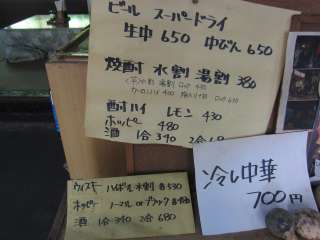 ビール スーパードライ
生中 650 中びん 650
焼酎 水割 湯割 380
酎ハイ レモン 430
ホッピー 480
酒 1合 340 2合 6
ウィスキー ハイボール 水割 各330
ホッピー ノーマル or ブラック 各480
酒 1合 340 2合 680
冷し中華
700円